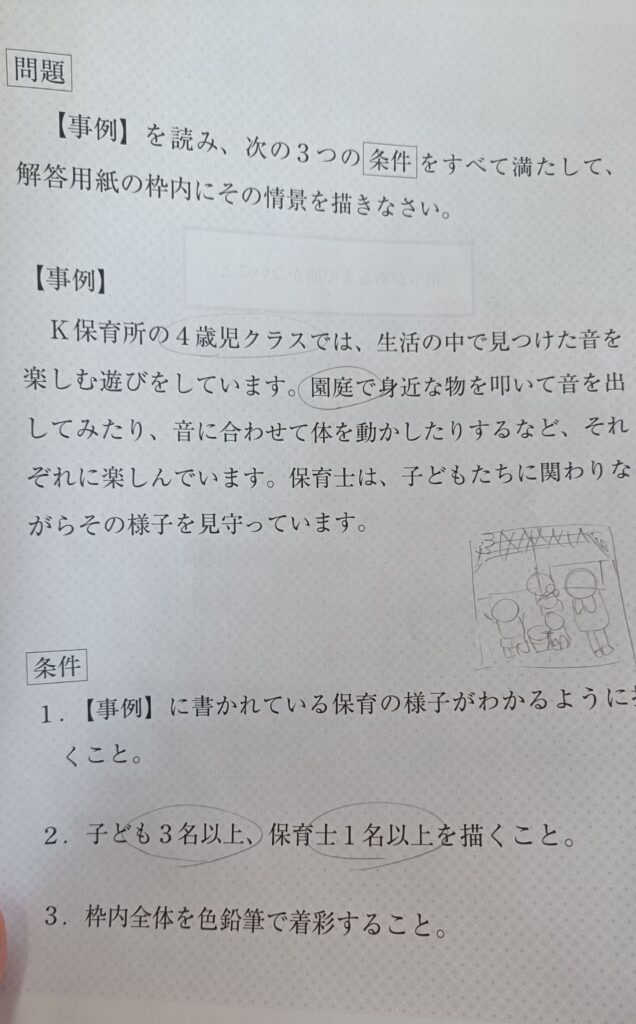 問題
【事例】を読み、次の3つの条件をすべて満たして、
解答用紙の枠内にその情景を描きなさい。
【事例】
K保育所の4歳児クラスでは、生活の中で見つけた音を
楽しむ遊びをしています。園庭で身近な物を叩いて音を出
してみたり、音に合わせて体を動かしたりするなど、それ
ぞれに楽しんでいます。保育士は、子どもたちに関わりな
がらその様子を見守っています。
条件
1.【事例】に書かれている保育の様子がわかるように描
くこと。
2.子ども3名以上、保育士1名以上を描くこと。
3.枠内全体を色鉛筆で着彩すること。